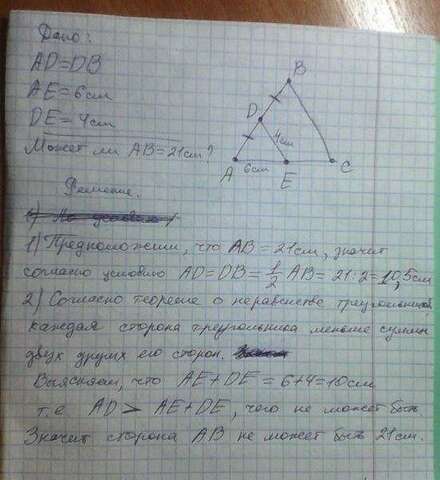 Дано:
AD=DB
AE=6см
DE=4см
Может ли AB=21см?
B
D
4см
A 6см E C
Решение.
1) По условию
1) Предположим, что AB=21см, значит
согласно условию AD=DB=1/2 AB=21:2=10,5см
2) Согласно теореме о неравенстве треугольника
каждая сторона треугольника меньше суммы
двух других его сторон.
Выясняем, что AE+DE=6+4=10см
т.е AD > AE+DE, чего не может быть
Значит сторона AB не может быть 21см.